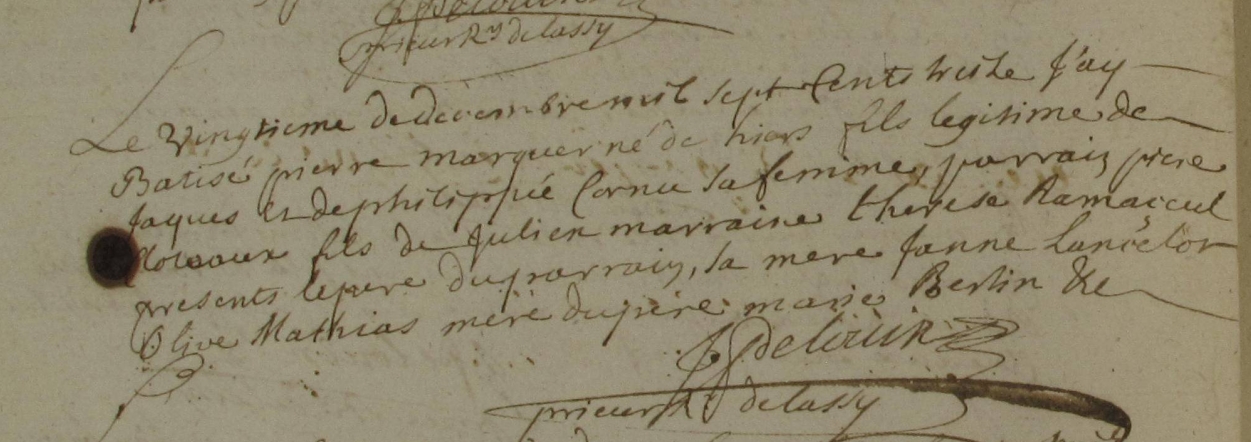 prieur Rr delassy
Le vingtieme de decembre mil sept cents trente J'ay
Batisé pierre marquer né de hiers fils legitime de
Jaques et de philippie Cornu sa femme, parrain piere
fils de Julien marraine therese Ramaceul
presents le pere du parrain, sa mere Janne Lancelot
Olive Mathias mere du piere marie Bertin &c
prieur Rr delassy